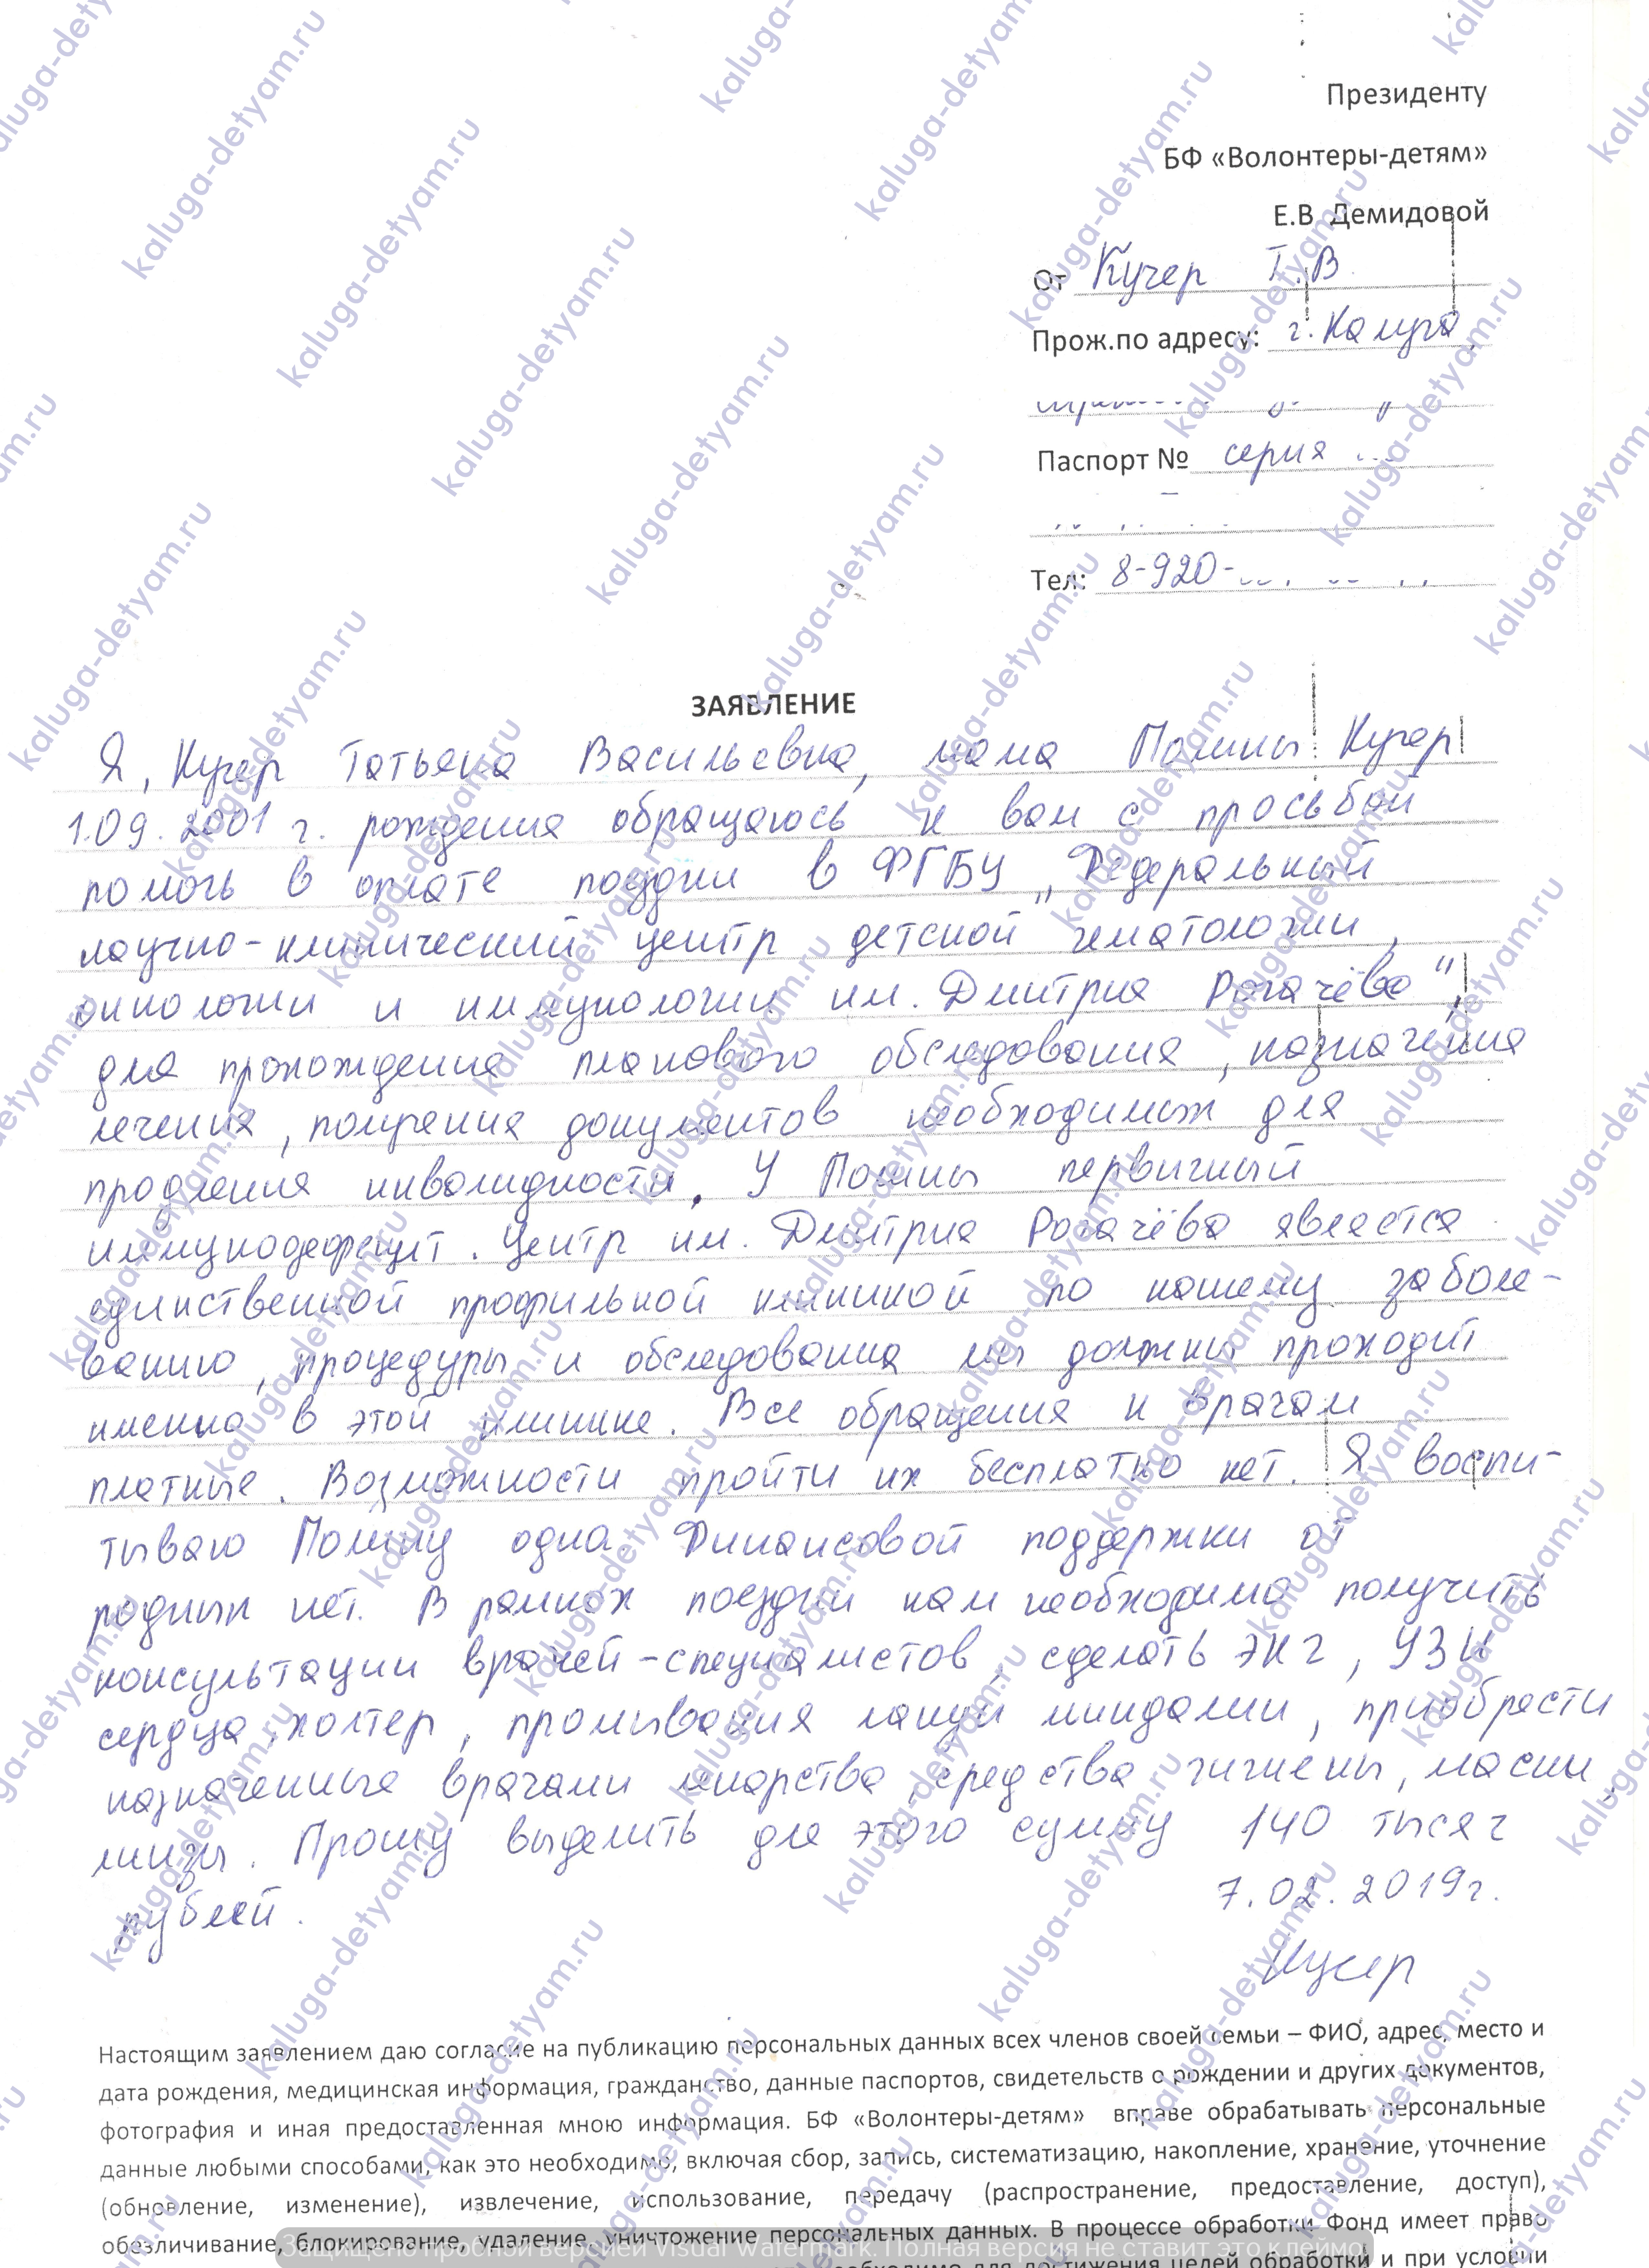 Президенту
БФ «Волонтеры-детям»
Е.В. Демидовой
От Кучер Т.В
Прож.по адресу: г. Калуга,
Паспорт № серия
Тел: 8-920-
ЗАЯВЛЕНИЕ
Я, Кучер Татьяна Васильевна, мама Полины Кучер
1.09.2001 г. рождения обращаюсь к вам с просьбой
помочь в оплате поездки в ФГБУ „Федеральный
научно-клинический центр детской гематологии,
онкологии и иммунологии им. Дмитрия Рогачёва",
для прохождения планового обследования, назначения
лечения, получения документов необходимых для
продления инвалидности. У Полины первичный
иммунодефицит. Центр им. Дмитрия Рогачёва является
единственной профильной клиникой по нашему заболе-
ванию, процедуры и обследования мы должны проходит
именно в этой клинике. Все обращения к врачам
платные. Возможности пройти их бесплатно нет. Я воспи-
тываю Полину одна. Финансовой поддержки от
родных нет. В рамках поездки нам необходимо получить
консультации врачей-специалистов, сделать ЭКГ, УЗИ
сердца, холтер, промывания лакун миндалин, приобрести
назначенные врачами лекарства, средства гигиены, маски,
линзы. Прошу выделить для этого сумму 140 тысяч
рублей.
7.02.2019г.
Кучер
Настоящим заявлением даю согласие на публикацию персональных данных всех членов своей семьи – ФИО, адрес, место и
дата рождения, медицинская информация, гражданство, данные паспортов, свидетельств о рождении и других документов,
фотография и иная предоставленная мною информация. БФ «Волонтеры-детям» вправе обрабатывать персональные
данные любыми способами, как это необходимо, включая сбор, запись, систематизацию, накопление, хранение, уточнение
(обновление, изменение), извлечение, использование, передачу (распространение, предоставление, доступ),
обезличивание, блокирование, удаление, уничтожение персональных данных. В процессе обработки Фонд имеет право
Защищено пробной версией Visual Watermark. Полная версия не ставит это клеймо.
для достижения целей обработки и при условии
kaluga-detyam.ru